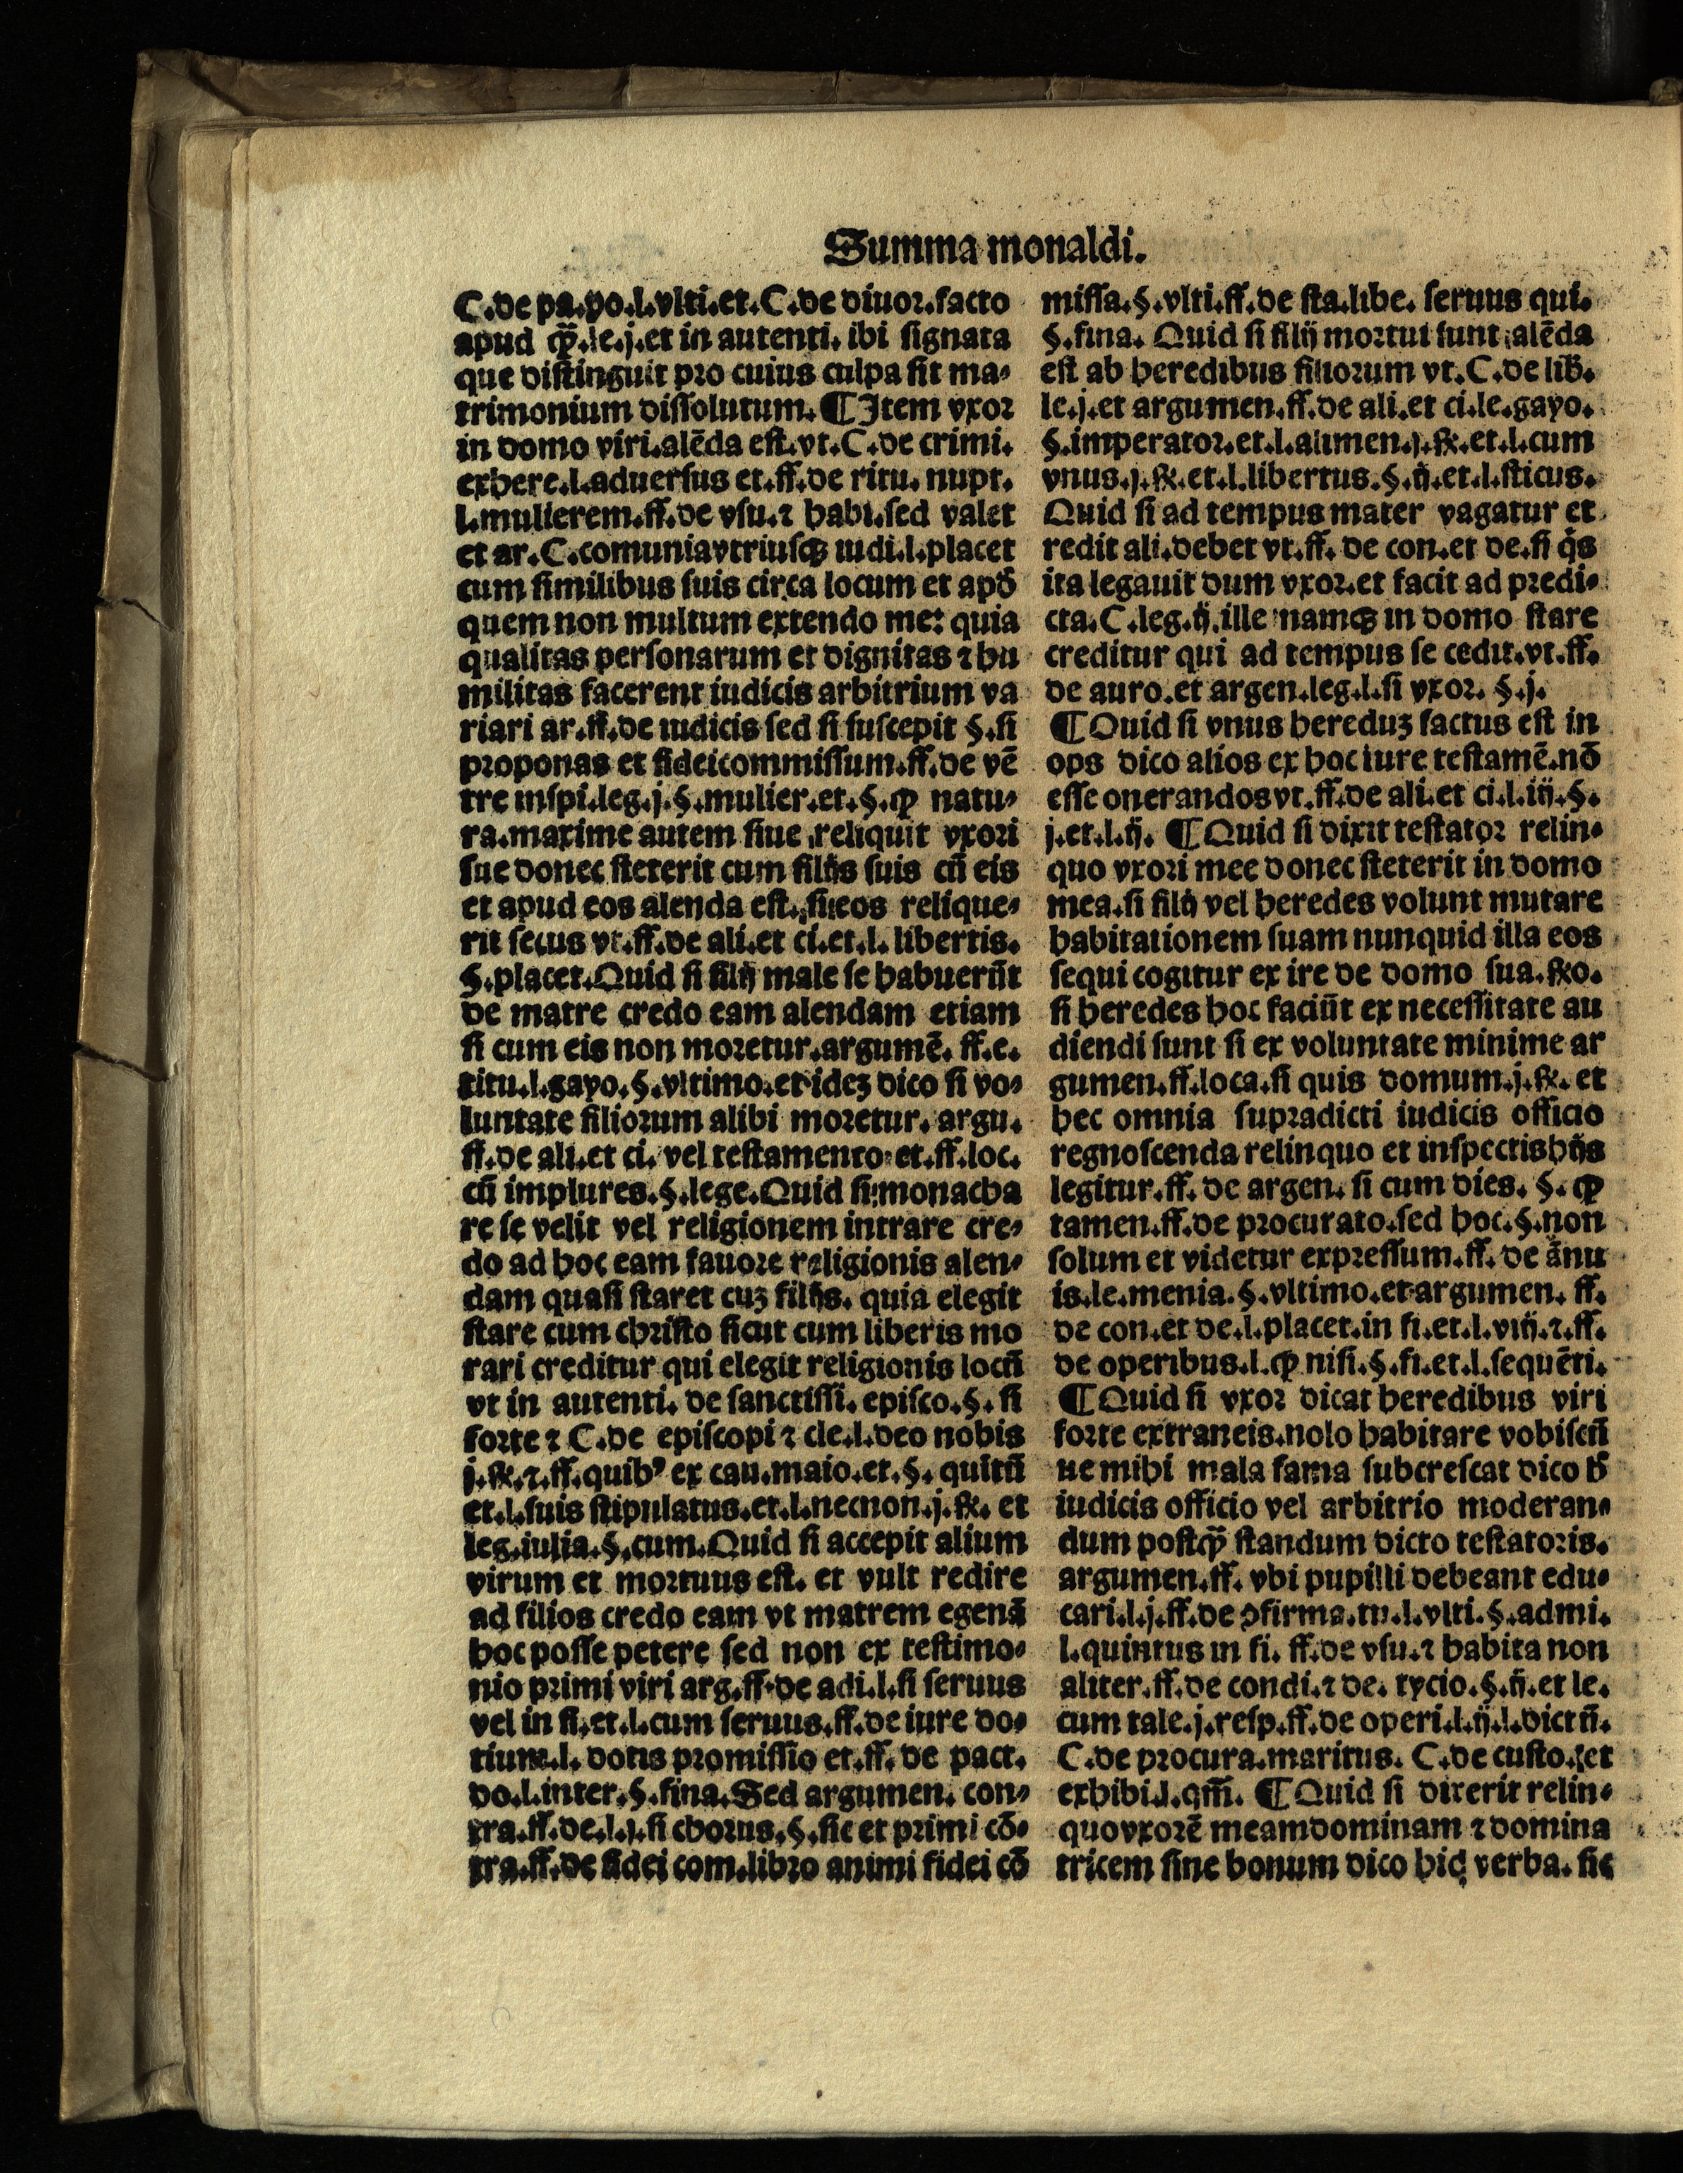 Summa monaldi.
C.de pa.po.l.vlti.et.C.de diuor.facto
apud qꝫ.le.j.et in autenti. ibi signata
que distinguit pro cuius culpa sit ma⸗
trimonium dissolutum. ¶ Item vxor
in domo viri.alēda est.vt.C.de crimi.
exhere.l.aduersus et.ff.de ritu. nupt.
l.mulierem.ff.de vsu.⁊ habi.sed valet
et ar.C.comuniavtriusqꝫ iudi.l.placet
cum similibus suis circa locum et apđ
quem non multum extendo me: quia
qualitas personarum et dignitas ⁊ hu
militas facerent iudicis arbitrium va
riari ar.ff.de iudicis sed si suscepit §.si
proponas et fideicommissum.ff.de vē
tre inspi.leg.j.§.mulier.et.§.ꝙ natu⸗
ra.maxime autem siue reliquit vxori
sue donec steterit cum filijs suis cū eis
et apud eos alenda est. si eos relique⸗
rit secus vt.ff.de ali.et ci.et.l. libertis.
§.placet.Quid si filij male se habuerūt
de matre credo eam alendam etiam
si cum eis non moretur.argumē. ff.e.
titu.l.gayo.§.vltimo.et ideꝫ dico si vo⸗
luntate filiorum alibi moretur. argu.
ff.de ali.et ci. vel testamento et.ff.loc.
cū implures.§.lege.Quid si monacha
re se velit vel religionem intrare cre⸗
do ad hoc eam fauore religionis alen⸗
dam quasi staret cuꝫ filijs. quia elegit
stare cum christo sicut cum liberis mo
rari creditur qui elegit religionis locū
vt in autenti. de sanctissi. episco.§. si
forte ⁊ C.de episcopi ⁊ cle.l.deo nobis
j.℟.⁊.ff.quibꝰ ex cau.maio.et.§. quitū
et.l.suis stipulatus.et.l.necnon.j.℟. et
leg.iulia.§.cum.Quid si accepit alium
virum et mortuus est. et vult redire
ad filios credo eam vt matrem egenā
hoc posse petere sed non ex testimo⸗
nio primi viri arg.ff.de adi.l.si seruus
vel in fi.et.l.cum seruus.ff.de iure do⸗
tium.l. dotis promissio et.ff. de pact.
do.l.inter.§.fina.Sed argumen. con⸗
tra.ff.de.l.j.si chorus.§.sic et primi cō⸗
tra.ff.de fidei com.libro animi fidei cō
missa.§.vlti.ff.de sta.libe. seruus qui.
§.fina. Quid si filij mortui sunt alēda
est ab heredibus filiorum vt.C.de lib̄.
le.j.et argumen.ff.de ali.et ci.le.gayo.
§.imperator.et.l.alimen.j.℟.et.l.cum
vnus.j.℟.et.l.libertus.§.ij.et.l.sticus.
Quid si ad tempus mater vagatur et
redit ali.debet vt.ff. de con.et de.si q̇s
ita legauit dum vxor.et facit ad predi⸗
cta.C.leg.ij.ille namqꝫ in domo stare
creditur qui ad tempus se cedit.vt.ff.
de auro.et argen.leg.l.si vxor. §.j.
¶ Quid si vnus hereduꝫ factus est in
ops dico alios ex hoc iure testamē.nō
esse onerandos vt.ff.de ali.et ci.l.iij.§.
j.et.l.ij. ¶ Quid si dixit testator relin⸗
quo vxori mee donec steterit in domo
mea.si filij vel heredes volunt mutare
habitationem suam nunquid illa eos
sequi cogitur ex ire de domo sua.℟o.
si heredes hoc faciūt ex necessitate au
diendi sunt si ex voluntate minime ar
gumen.ff.loca.si quis domum.j.℟. et
hec omnia supradicti iudicis officio
regnoscenda relinquo et inspectis hijs
legitur.ff. de argen. si cum dies. §. ꝙ
tamen.ff.de procurato.sed hoc.§.non
solum et videtur expressum.ff. de ānu
is.le.menia.§.vltimo.et argumen. ff.
de con.et de.l.placet.in fi.et.l.viij.⁊.ff.
de operibus.l.ꝙ nisi.§.fi.et.l.sequēti.
¶ Quid si vxor dicat heredibus viri
forte extraneis.nolo habitare vobiscū
ne mihi mala fama subcrescat dico
iudicis officio vel arbitrio moderan⸗
dum postqꝫ standum dicto testatoris.
argumen.ff. vbi pupilli debeant edu⸗
cari.l.j.ff.de ꝯfirma.tu.l.vlti.§.admi.
l.quintus in fi. ff.de vsu.⁊ habita non
aliter.ff.de condi.⁊ de. tycio.§.ij.et le.
cum tale.j.resp.ff.de operi.l.ij.l.dictū.
C.de procura.maritus. C.de custo.et
exhibi.l.qm̄. ¶ Quid si dixerit relin⸗
quo vxorē meam dominam ⁊ domina
tricem siue bonum dico hic verba. sic